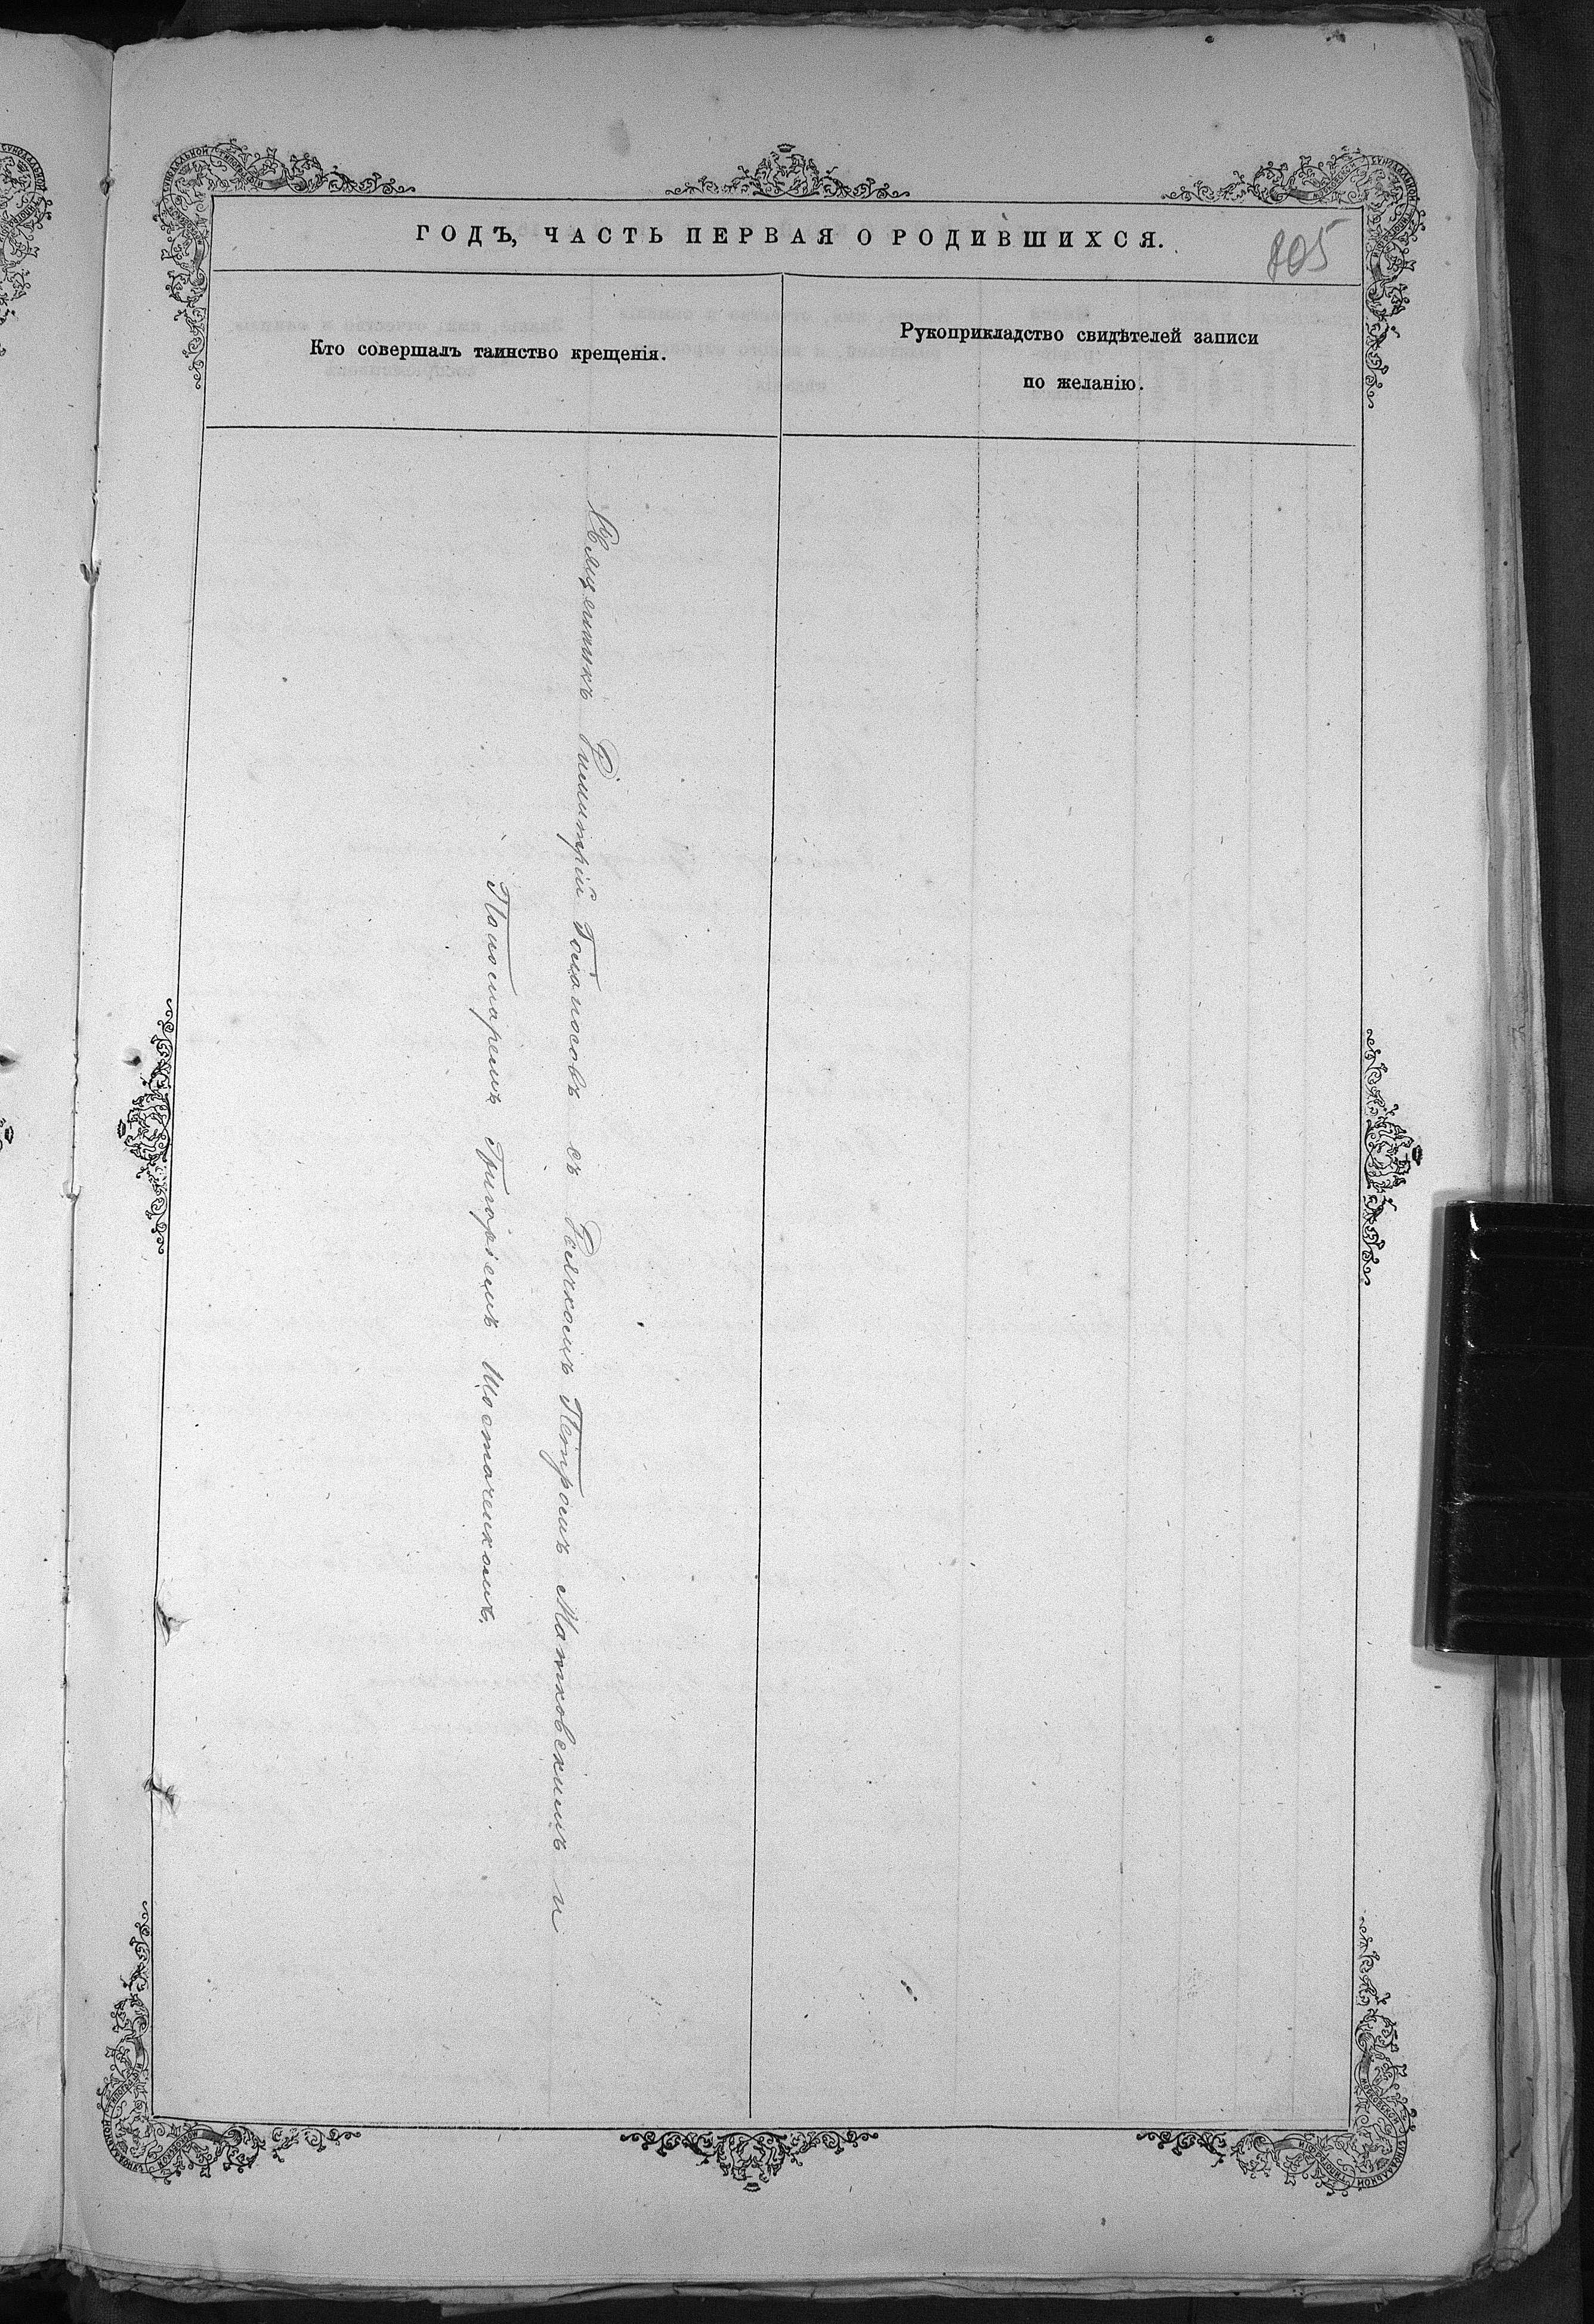 ГОДЪ, ЧАСТЬ ПЕРВАЯ О РОДИВШИХСЯ.
805
Кто совершалъ таинство крещенія.
Рукоприкладство свидѣтелей записи
по желанію.
Священникъ Димитрій Голоносовъ съ Дьячкомъ Петромъ Матковскимъ и
Паномаремъ Григоріемъ Шостаченкомъ.